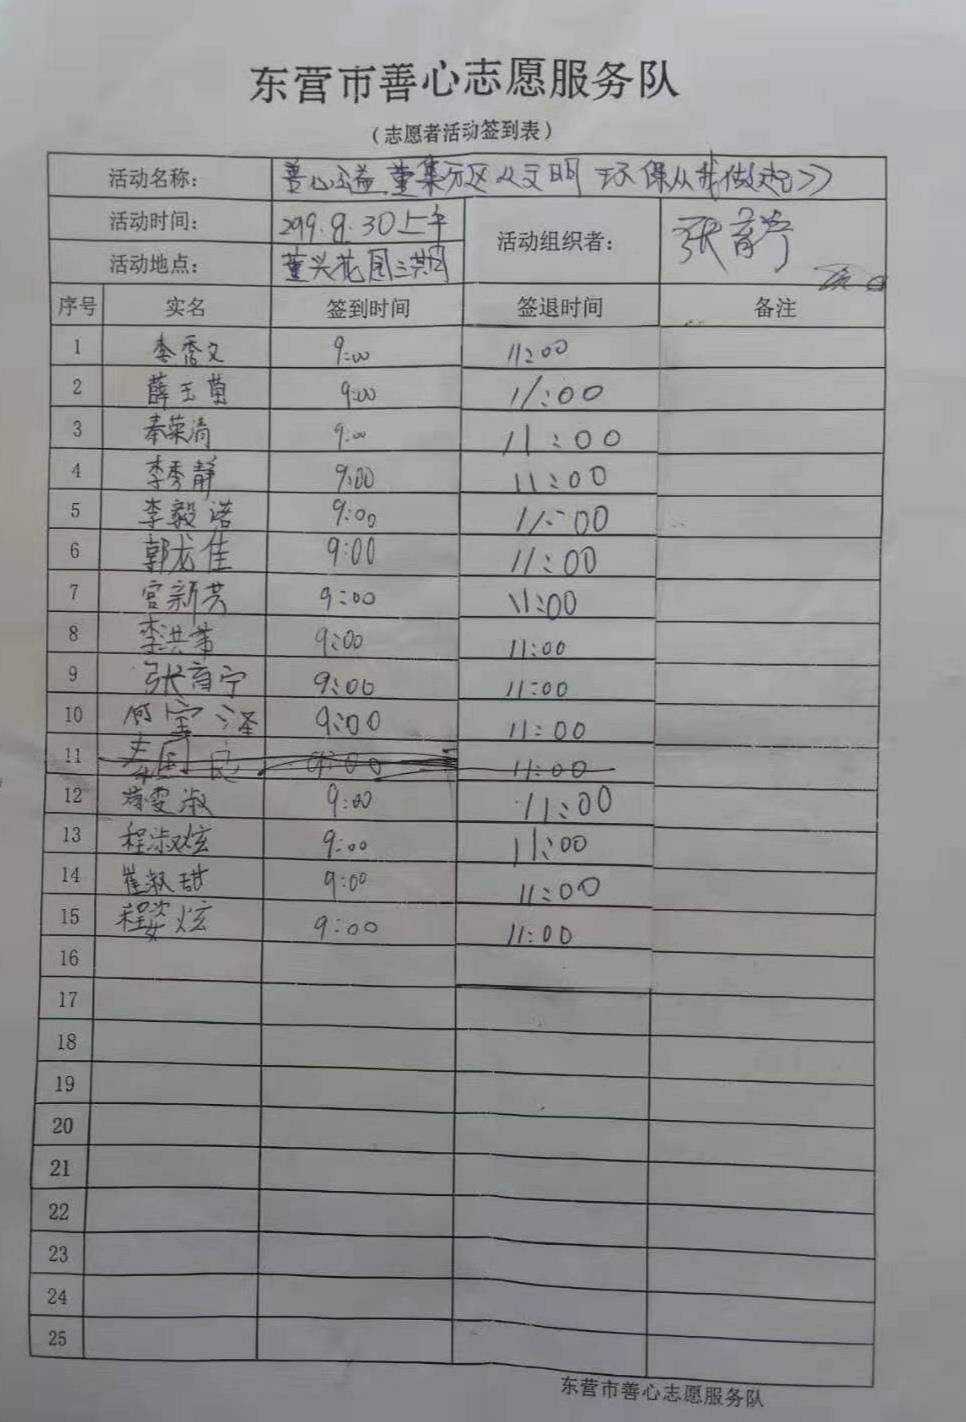 东营市善心志愿服务队
（志愿者活动签到表）
活动名称： 善心公益 董集分区《文明 环保从我做起》
活动时间： 2019.9.30上午 活动组织者： 张育宁
活动地点： 董兴花园三期
序号 实名 签到时间 签退时间 备注
1 李香文 9:00 11:00
2 薛玉菊 9:00 11:00
3 秦荣清 9:00 11:00
4 李秀静 9:00 11:00
5 李毅诺 9:00 11:00
6 郭龙佳 9:00 11:00
7 宫新芳 9:00 11:00
8 李洪 9:00 11:00
9 张育宁 9:00 11:00
10 何宝泽 9:00 11:00
11 国良 9:00 11:00
12 雯淑 9:00 11:00
13 程淑炫 9:00 11:00
14 崔淑甜 9:00 11:00
15 程姿炫 9:00 11:00
16
17
18
19
20
21
22
23
24
25
东营市善心志愿服务队